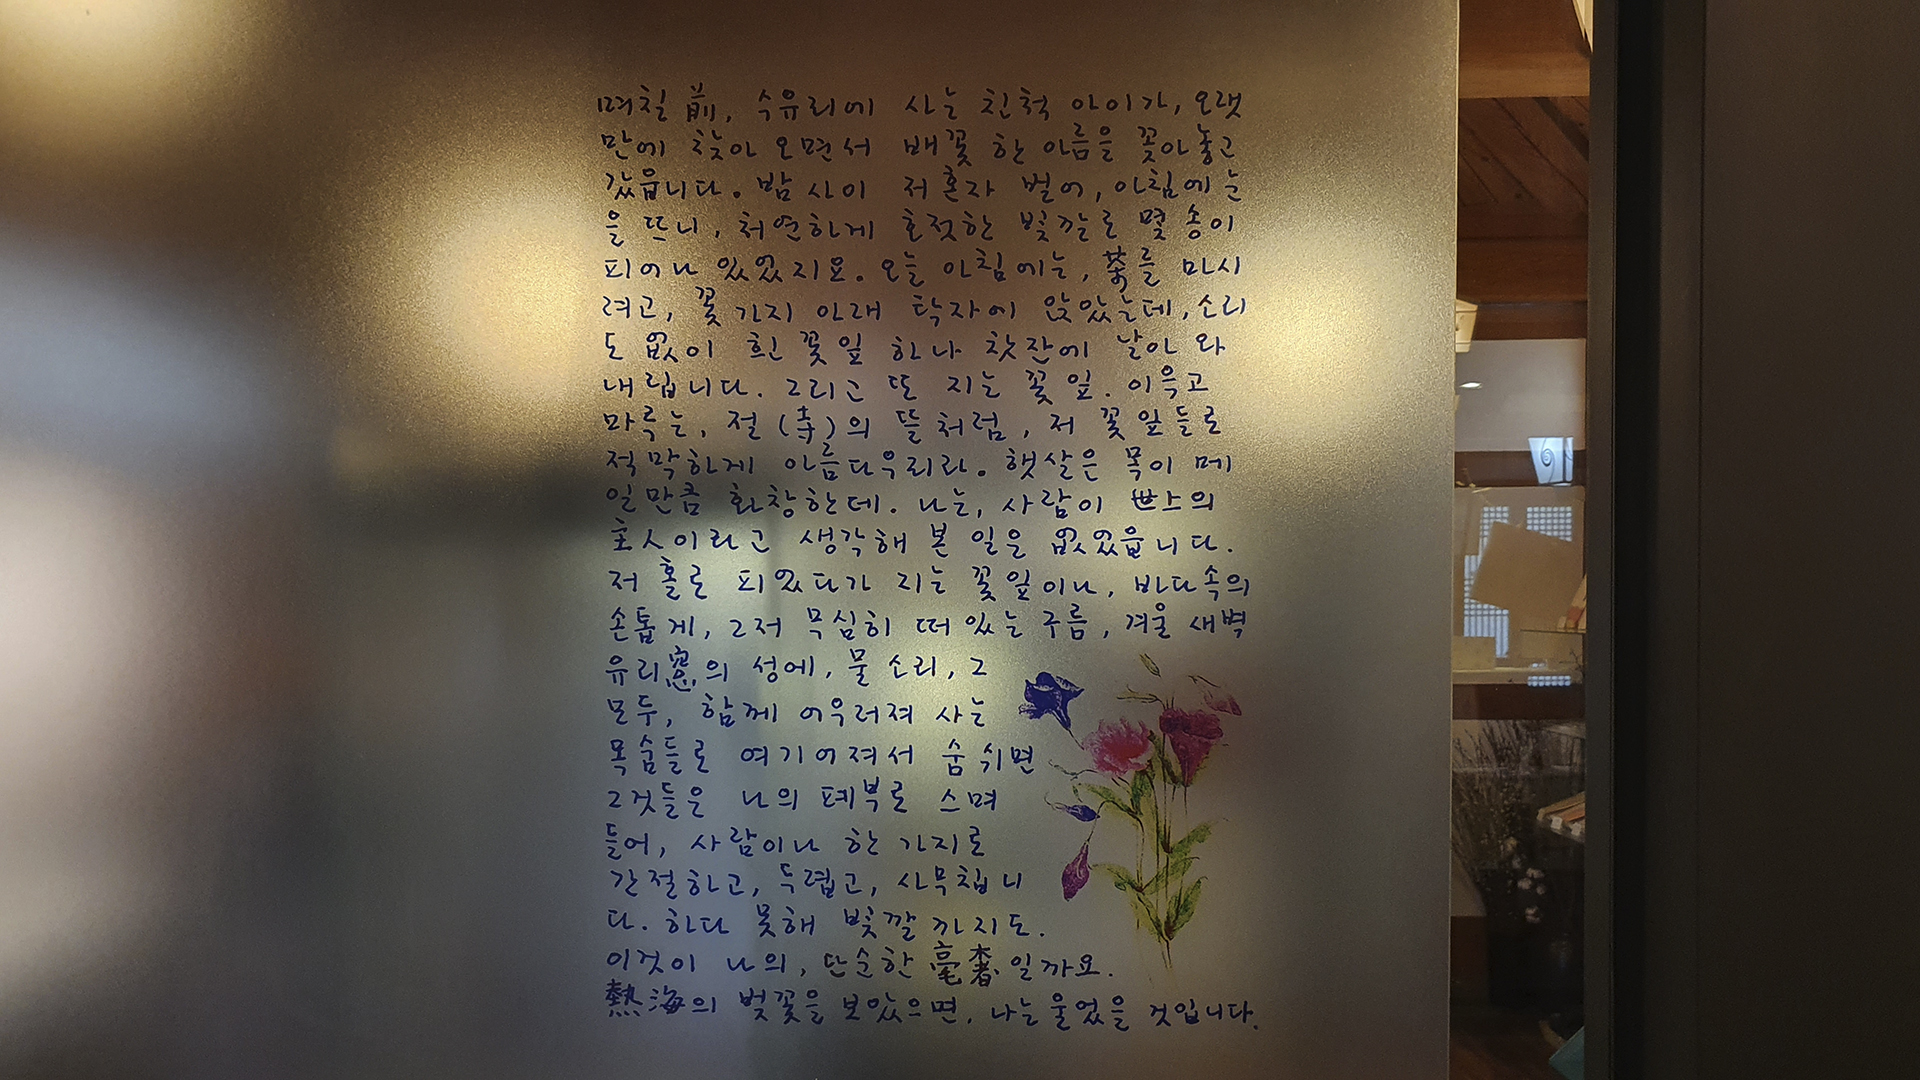 며칠 前, 수유리에 사는 친척 아이가, 오랫
만에 찾아 오면서 배꽃 한 아름을 꽂아놓고
갔읍니다. 밤 사이 저 혼자 벌어, 아침에 눈
을 뜨니, 처연하게 호젓한 빛깔로 몇 송이
피어나 있었지요. 오늘 아침에는, 茶를 마시
려고, 꽃 가지 아래 탁자에 앉았는데, 소리
도 없이 흰 꽃잎 하나 찻잔에 날아 와
내립니다. 그리고 또 지는 꽃잎. 이윽고
마루는, 절(寺)의 뜰처럼, 저 꽃잎들로
적막하게 아름다우리라. 햇살은 목이 메
일만큼 화창한데. 나는, 사람이 世上의
主人이라고 생각해 본 일은 없었읍니다.
저 홀로 피었다가 지는 꽃잎이나, 바다속의
손톱게, 그저 무심히 떠 있는 구름, 겨울 새벽
유리窓의 성에, 물 소리, 그
모두, 함께 어우러져 사는
목숨들로 여기어져서 숨쉬면
그것들은 나의 폐부로 스며
들어, 사람이나 한 가지로
간절하고, 두렵고, 사무칩니
다. 하다 못해 빛깔 까지도.
이것이 나의, 단순한 豪奢일까요.
熱海의 벚꽃을 보았으면, 나는 울었을 것입니다.